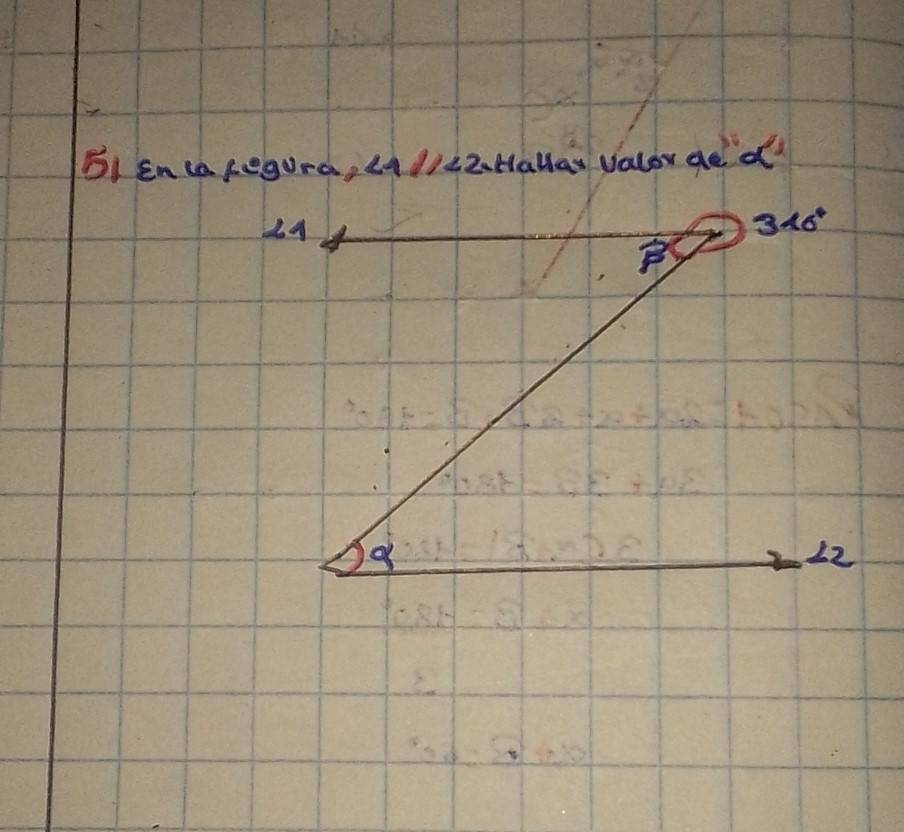 5) En la fegura, L1 // L2. Hallar valor de "α"
L1
310°
β
α
L2